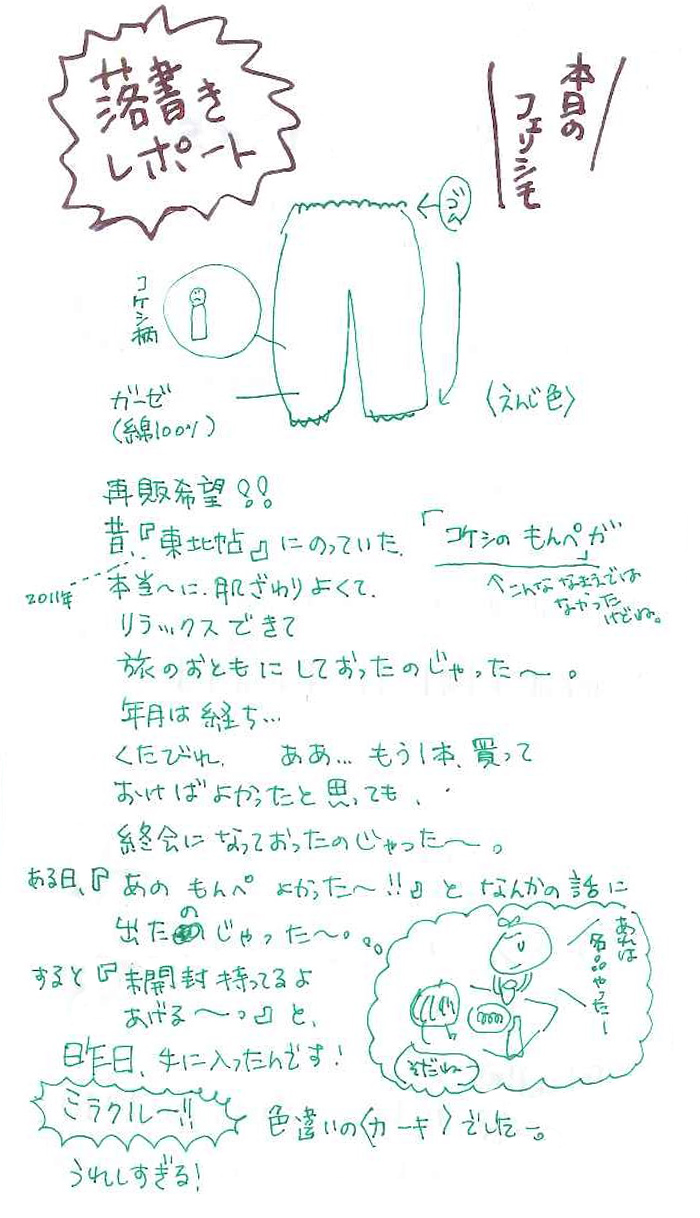 落書き
レポート
本日の
フェリシモ
ゴム
コケシ柄
ガーゼ
(綿100%)
〈えんじ色〉
再販希望!!
昔、『東北帖』にのっていた、「コケシの もんぺが」
2011年
↑こんな なまえでは
なかった
けどね。
本当へに、肌ざわりよくて、
リラックスできて
旅のおともにしておったのじゃった〜。
年月は経ち…
くたびれ、 ああ… もう1本、買って
おけばよかったと思っても、
終会になっておったのじゃった〜。
ある日、『あの もんぺ よかった〜!!』と なんかの話に
出たのじゃった〜。
あれは
名品やったー
そだねー
すると『未開封持ってるよ
あげる〜。』と、
昨日、手に入ったんです!
ミラクルー!!
色違いの〈カーキ〉でした〜。
うれしすぎる!